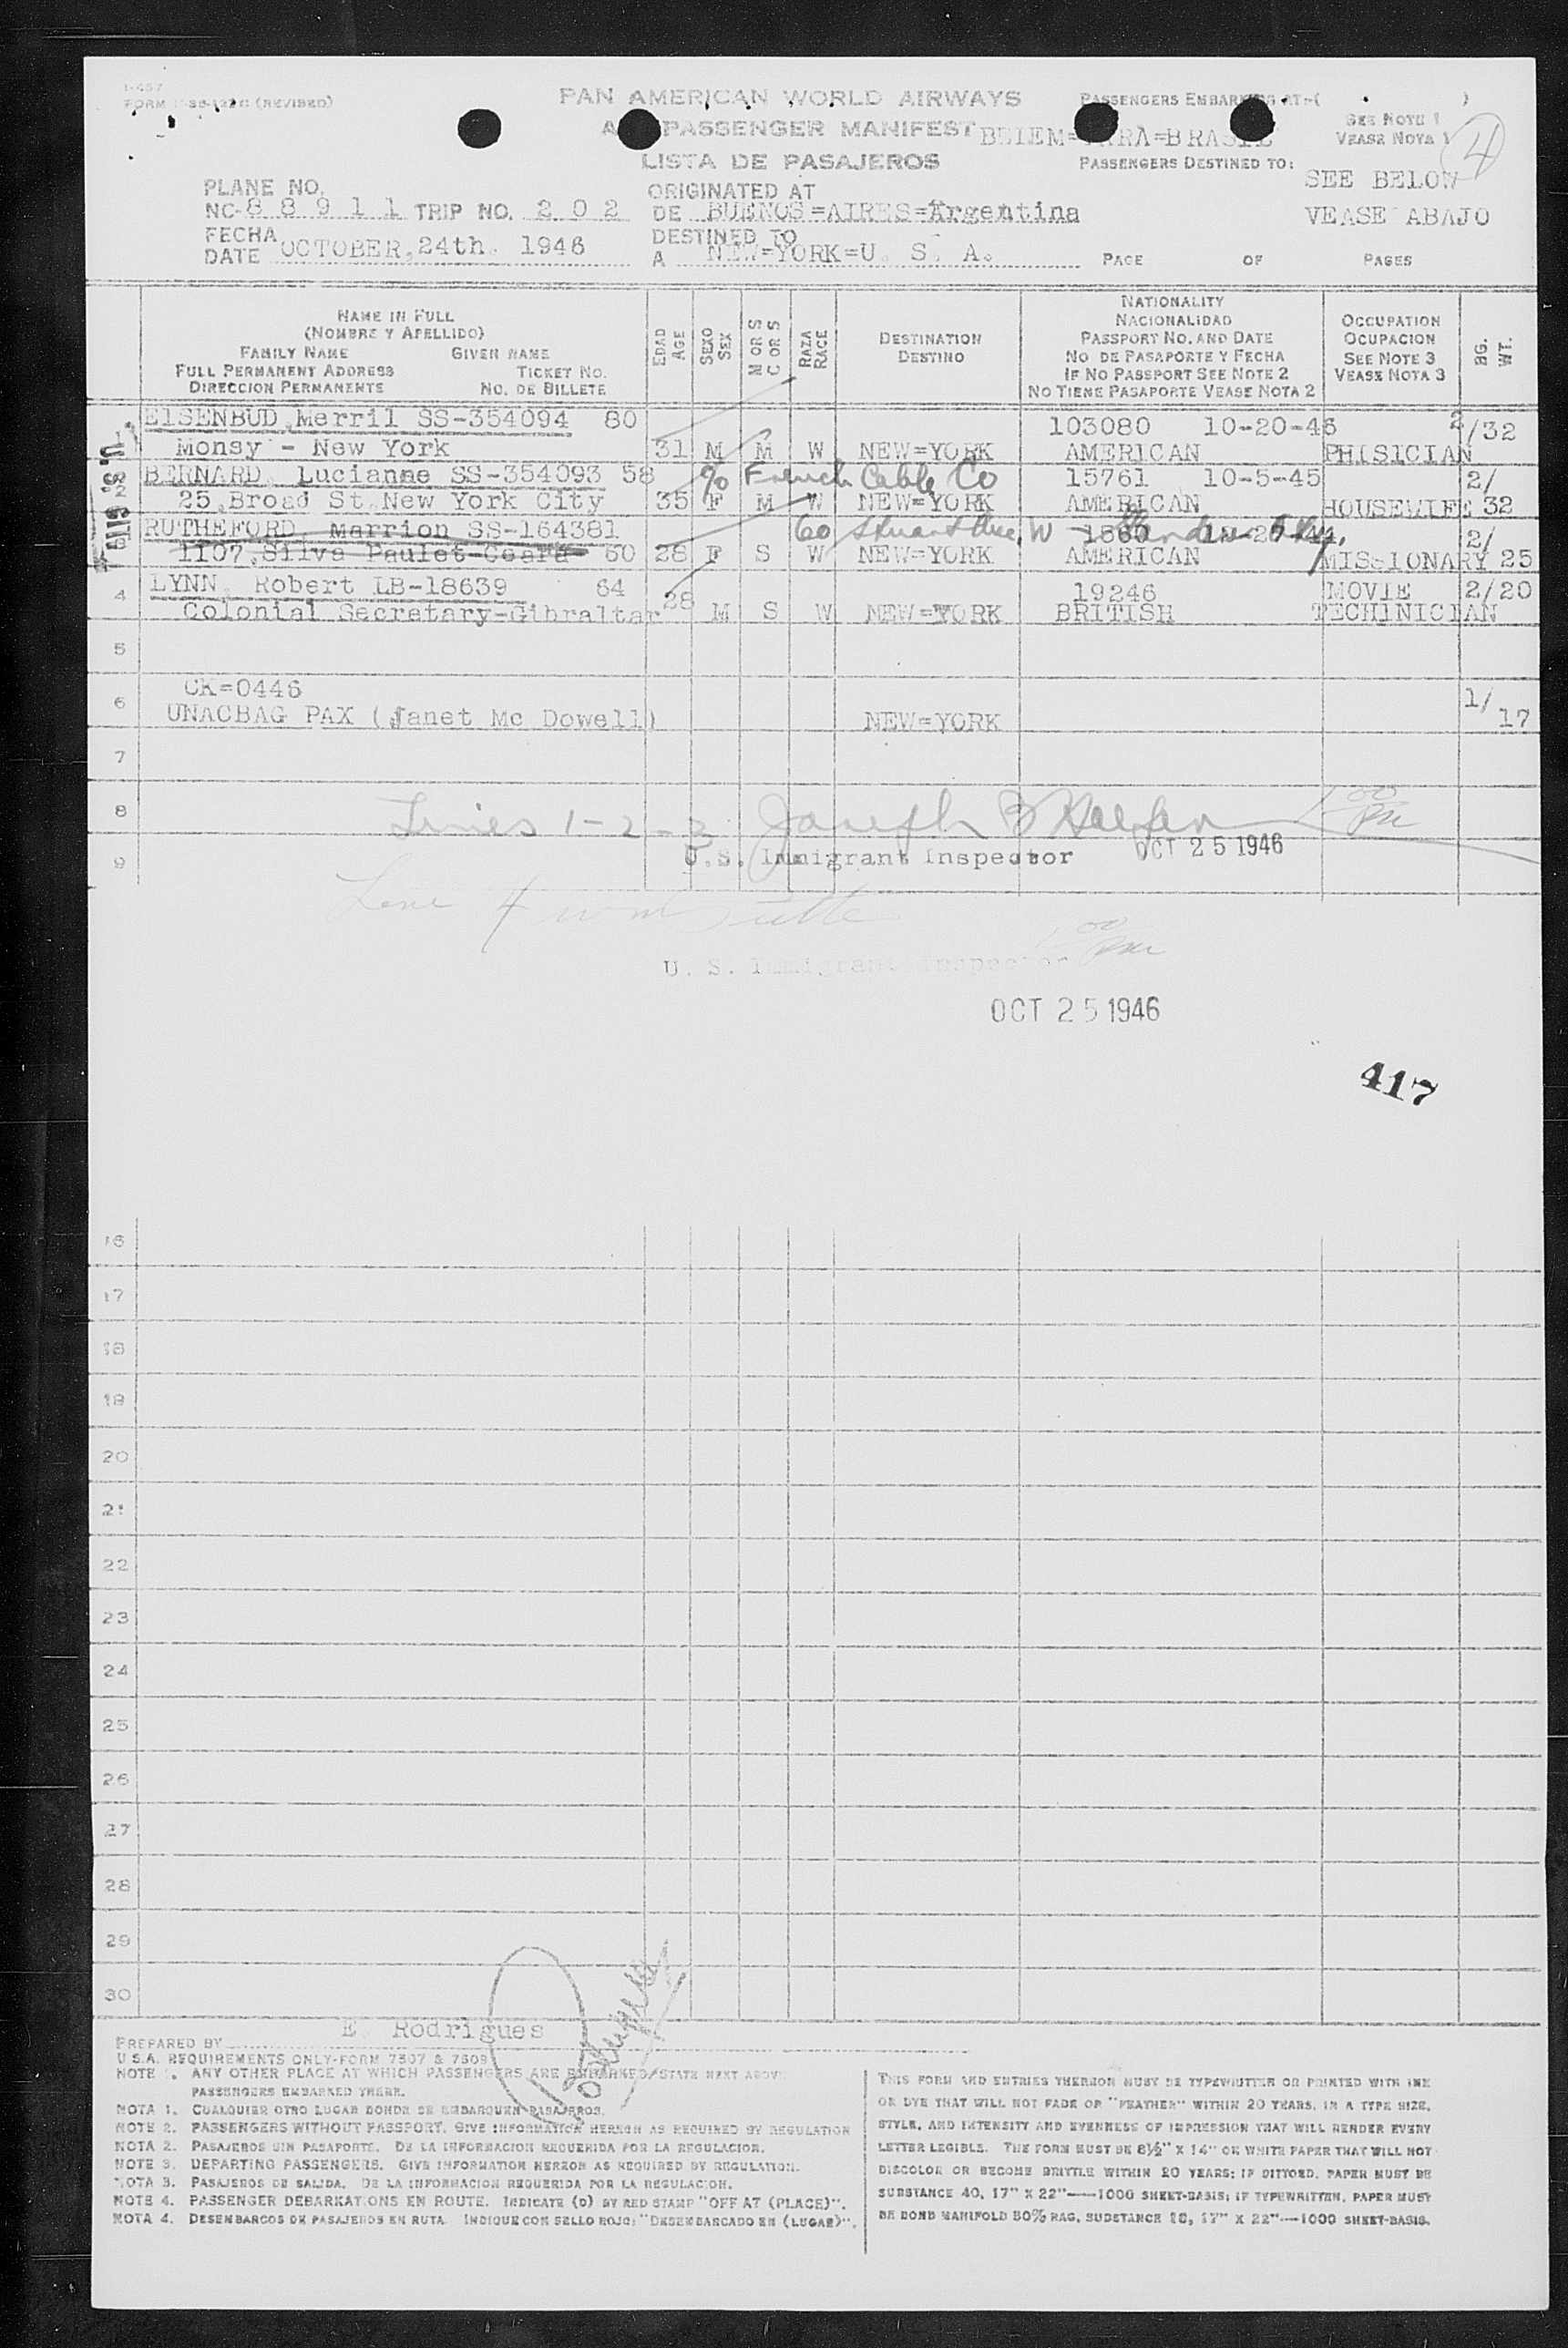 I-457
FORM (REVISED)
PAN AMERICAN WORLD AIRWAYS
PASSENGER MANIFEST
LISTA DE PASAJEROS
PASSENGERS EMBARKING AT-( )
SEE NOTE 1
VEASE NOTA 1
4
BELEM=PARA=BRASIL
PASSENGERS DESTINED TO:
SEE BELOW
VEASE ABAJO
PLANE NO.
NC-8 8 9 1 1 TRIP NO. 2 0 2
ORIGINATED AT
DE BUENOS=AIRES=Argentina
FECHA
DATE OCTOBER, 24th. 1946
DESTINED TO
A NEW=YORK=U. S. A.
PAGE OF PAGES
NAME IN FULL
(NOMBRE Y APELLIDO)
FAMILY NAME GIVEN NAME
FULL PERMANENT ADDRESS TICKET NO.
DIRECCION PERMANENTE NO. DE BILLETE
EDAD AGE
SEXO SEX
M OR S C OR S
RAZA RACE
DESTINATION
DESTINO
NATIONALITY
NACIONALIDAD
PASSPORT NO. AND DATE
NO DE PASAPORTE Y FECHA
IF NO PASSPORT SEE NOTE 2
NO TIENE PASAPORTE VEASE NOTA 2
OCCUPATION
OCUPACION
SEE NOTE 3
VEASE NOTA 3
BG. WT.
EISENBUD, Merril SS-354094 80 103080 10-20-46 2/32
Monsy - New York 31 M M W NEW=YORK AMERICAN PHISICIAN
BERNARD, Lucianne SS-354093 58 % French Cable Co 15761 10-5-45 2/
25, Broad St. New York City 35 F M W NEW=YORK AMERICAN HOUSEWIFE 32
RUTHEFORD Marrion SS-164381 60 Stuart Ave, W 1860 2/
1107, Silva Paulet-Ceará 60 28 F S W NEW=YORK AMERICAN MISSIONARY 25
4 LYNN, Robert LB-18639 64 28 19246 MOVIE 2/20
Colonial Secretary-Gibraltar M S W NEW=YORK BRITISH TECHINICIAN
5
CK=0446
6 UNACBAG PAX (Janet Mc Dowell) NEW=YORK 1/17
7
8 Lines 1-2-3 Joseph
9 U.S. Immigrant Inspector OCT 25 1946
Line 4
U. S. Immigrant Inspector
OCT 25 1946
417
16
17
18
19
20
21
22
23
24
25
26
27
28
29
30
PREPARED BY E. Rodrigues
U.S.A. REQUIREMENTS ONLY-FORM 7507 & 7509
NOTE 1. ANY OTHER PLACE AT WHICH PASSENGERS ARE EMBARKED/STATE NEXT ABOVE
PASSENGERS EMBARKED THERE.
NOTA 1. CUALQUIER OTRO LUGAR DONDE SE EMBARQUEN PASAJEROS.
NOTE 2. PASSENGERS WITHOUT PASSPORT. GIVE INFORMATION HEREON AS REQUIRED BY REGULATION
NOTA 2. PASAJEROS SIN PASAPORTE. DE LA INFORMACION REQUERIDA POR LA REGULACION.
NOTE 3. DEPARTING PASSENGERS. GIVE INFORMATION HEREON AS REQUIRED BY REGULATION.
NOTA 3. PASAJEROS DE SALIDA. DE LA INFORMACION REQUERIDA POR LA REGULACION.
NOTE 4. PASSENGER DEBARKATIONS EN ROUTE. INDICATE (D) BY RED STAMP "OFF AT (PLACE)".
NOTA 4. DESEMBARCOS DE PASAJEROS EN RUTA. INDIQUE CON SELLO ROJO: "DESEMBARCADO EN (LUGAR)".
THIS FORM AND ENTRIES THEREON MUST BE TYPEWRITTEN OR PRINTED WITH INK
OR DYE THAT WILL NOT FADE OR "FEATHER" WITHIN 20 YEARS, IN A TYPE SIZE,
STYLE, AND INTENSITY AND EVENNESS OF IMPRESSION THAT WILL RENDER EVERY
LETTER LEGIBLE. THE FORM MUST BE 8½" X 14" ON WHITE PAPER THAT WILL NOT
DISCOLOR OR BECOME BRITTLE WITHIN 20 YEARS; IF DITTOED, PAPER MUST BE
SUBSTANCE 40, 17" X 22"—1000 SHEET-BASIS; IF TYPEWRITTEN, PAPER MUST
BE BOND MANIFOLD 50% RAG, SUBSTANCE 16, 17" X 22"—1000 SHEET-BASIS.